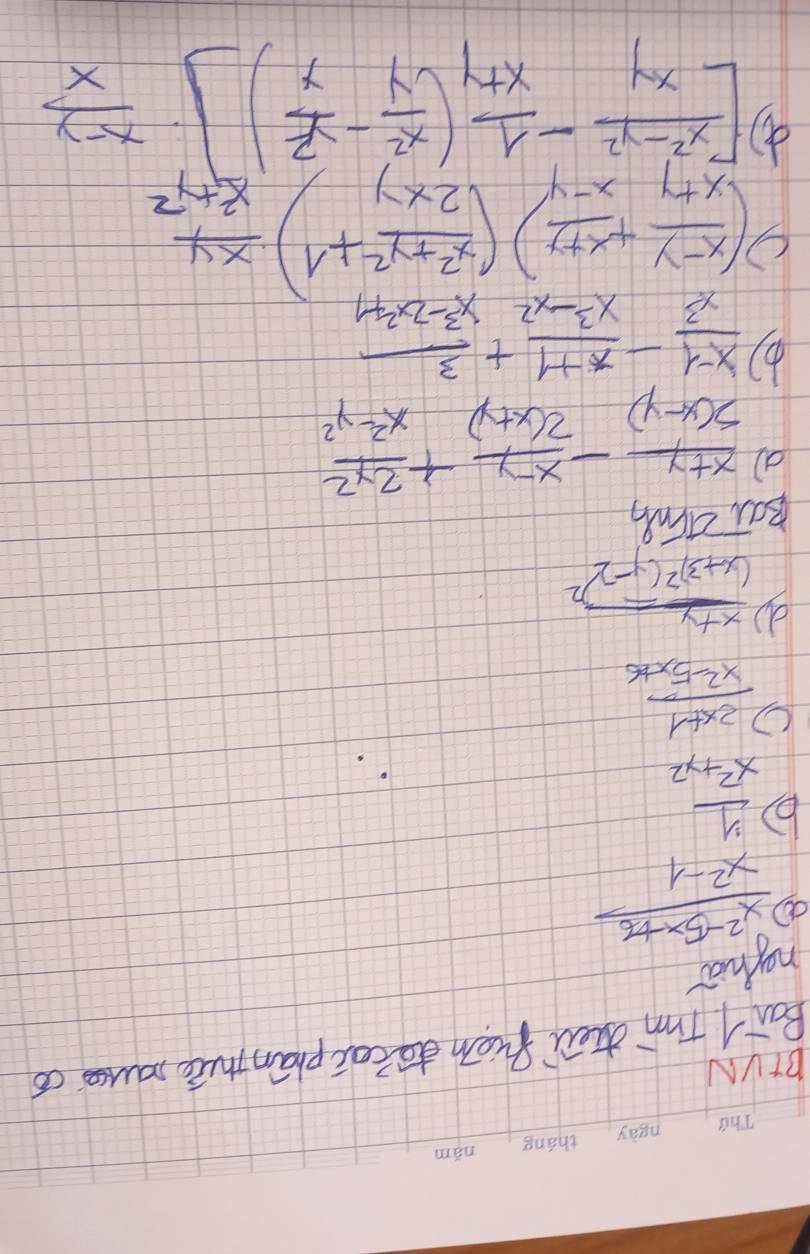 Thứ ngày tháng năm
BTVN
Bài 1 Tìm điều kiện để các phân thức sau có
nghĩa
a) (x²-5x+6)/(x²-1)
b) 1/(x²+y²)
c) (2x+1)/(x²-5x+6)
d) (x+y)/((x+3)²(y-2)²)
Bài 2 Tính
a) (x+y)/(2(x-y)) - (x-y)/(2(x+y)) + 2y²/(x²-y²)
b) (x-1)/x³ - (x+1)/(x³-x²) + 3/(x³-2x²+1)
c) ((x-y)/(x+y) + (x+y)/(x-y)) ((x²+y²)/(2xy) + 1) . xy/(x²+y²)
d) [(x²-y²)/(xy) - 1/(x+y) (x²/y - y²/x)] . (x-y)/x